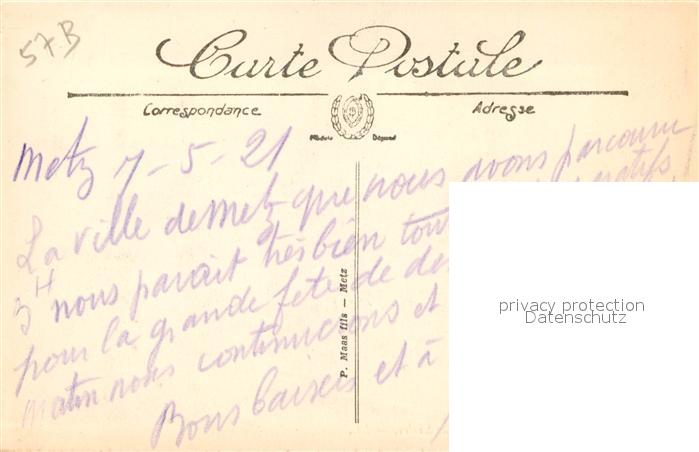 57B
Carte Postale
Correspondance
Adresse
Modèle Déposé
Metz 7-5-21
La ville de Metz que nous avons parcouru
3H nous parait très bien tout
pour la grande fête de de
matin nous continuerons et
Bons baisers et à
P. Maas fils — Metz
privacy protection
Datenschutz